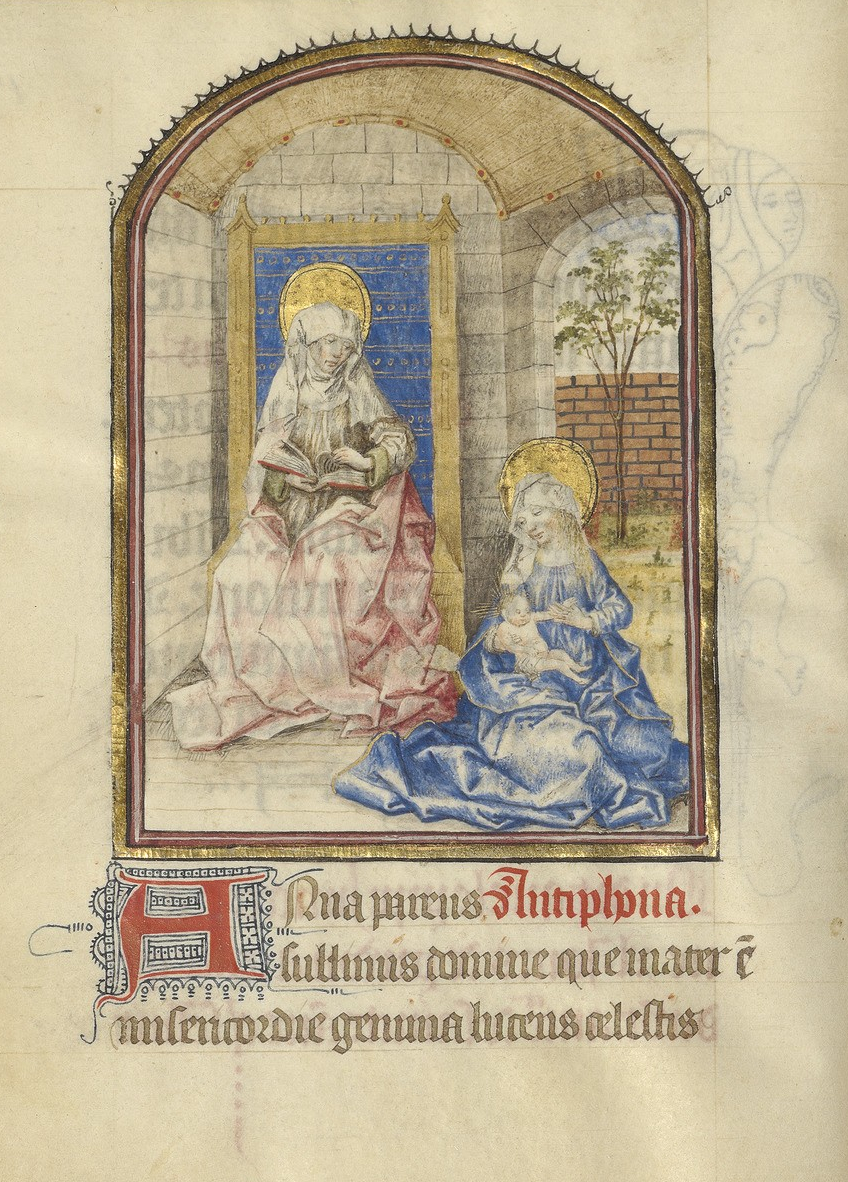 Anna parens Antiphona.
sullimis domine que mater ē
misericordie gemma lucens celestis